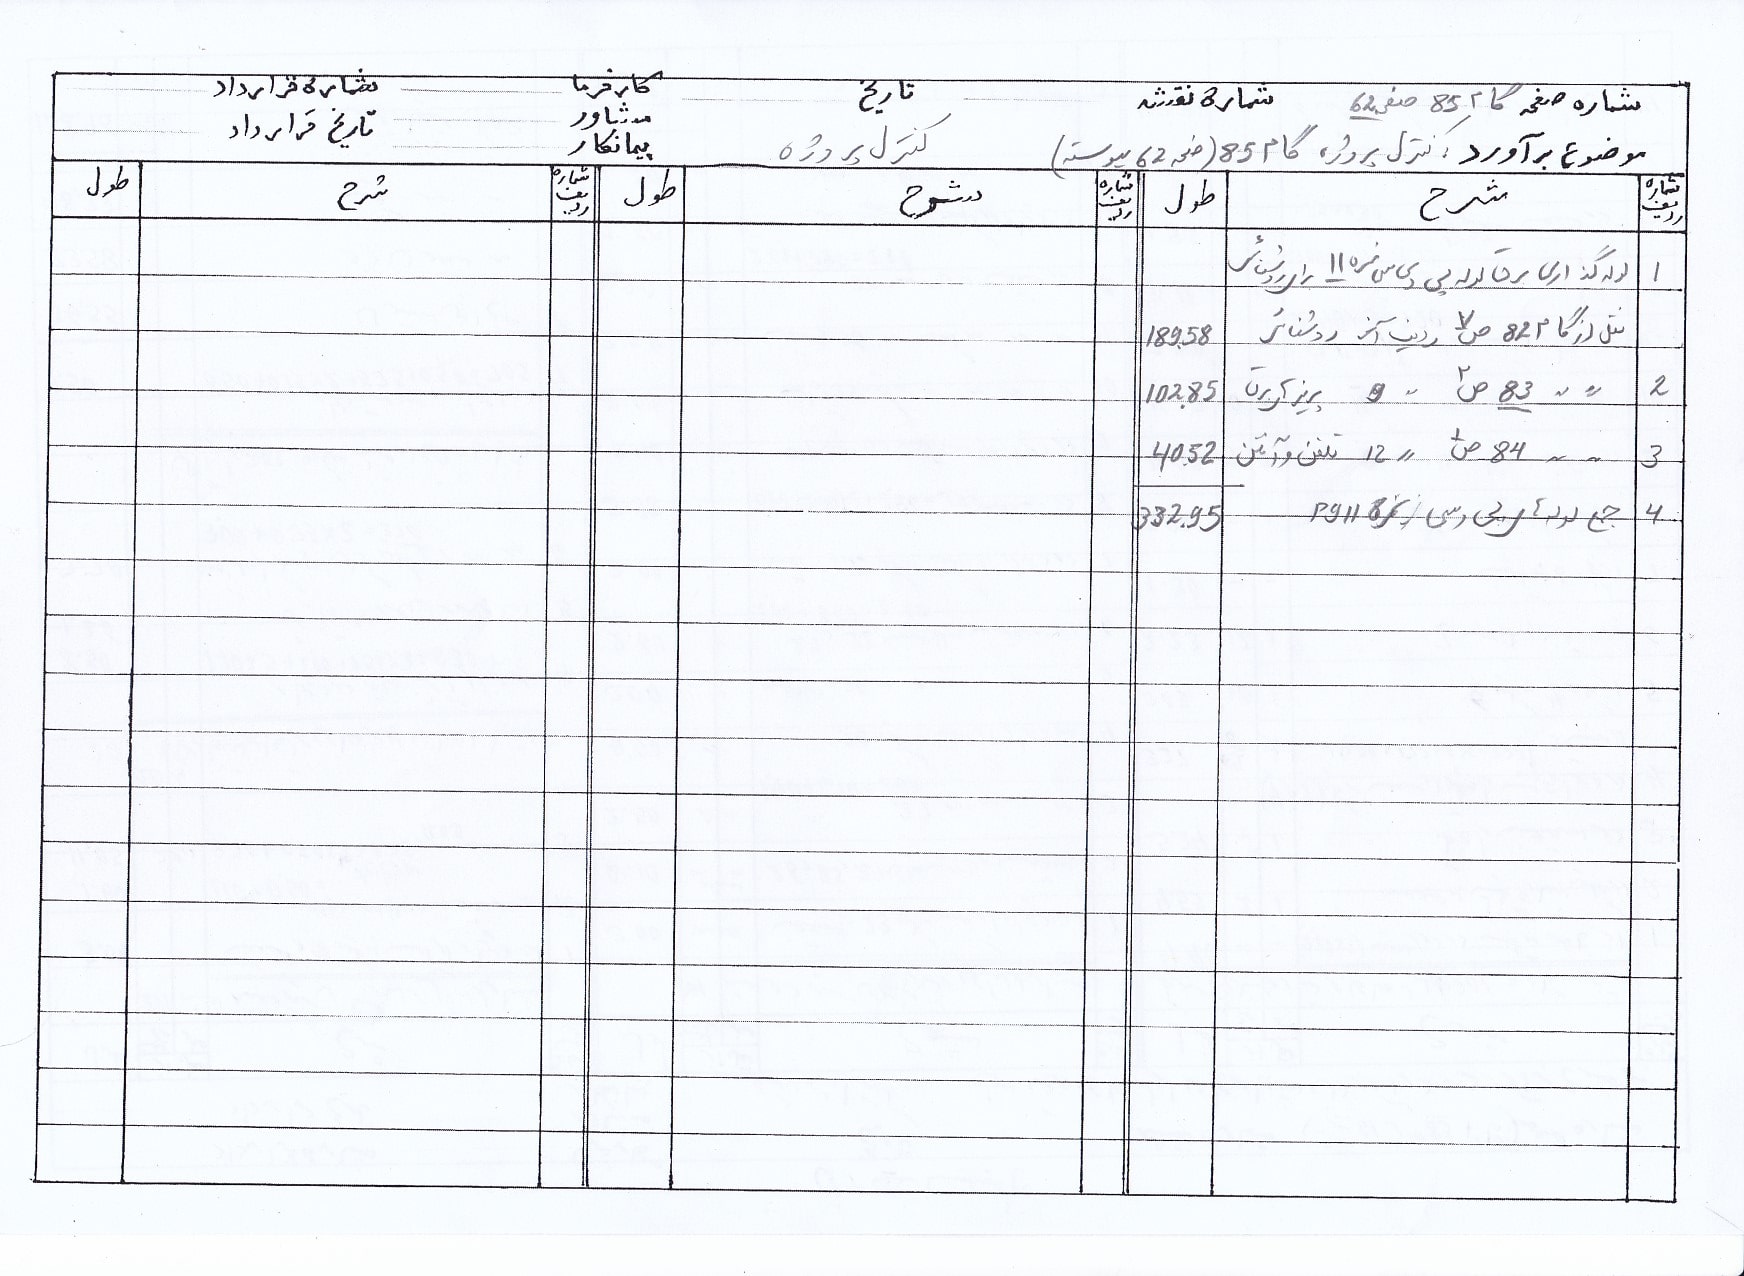 شماره صفحه گام 85 صفحه 62 شماره نقشه تاریخ کارفرما شماره قرارداد
مشاور تاریخ قرارداد
موضوع برآورد : کنترل پروژه گام 85 (صفحه 62 پیوسته) کنترل پروژه پیمانکار
شماره ردیف شرح طول شماره ردیف شرح طول شماره ردیف شرح طول
1 لوله گذاری برق لوله پی وی سی نمره 11 برای روشنائی
نقل از گام 82 ص 7 ردیف آخر روشنائی 189.58
2 " " 83 ص 2 " 9 پریزهای برق 102.85
3 " " 84 ص 1 " 12 تلفن و آنتن 40.52
4 جمع لوله های پی وی سی از نمره 11 PG 332.95